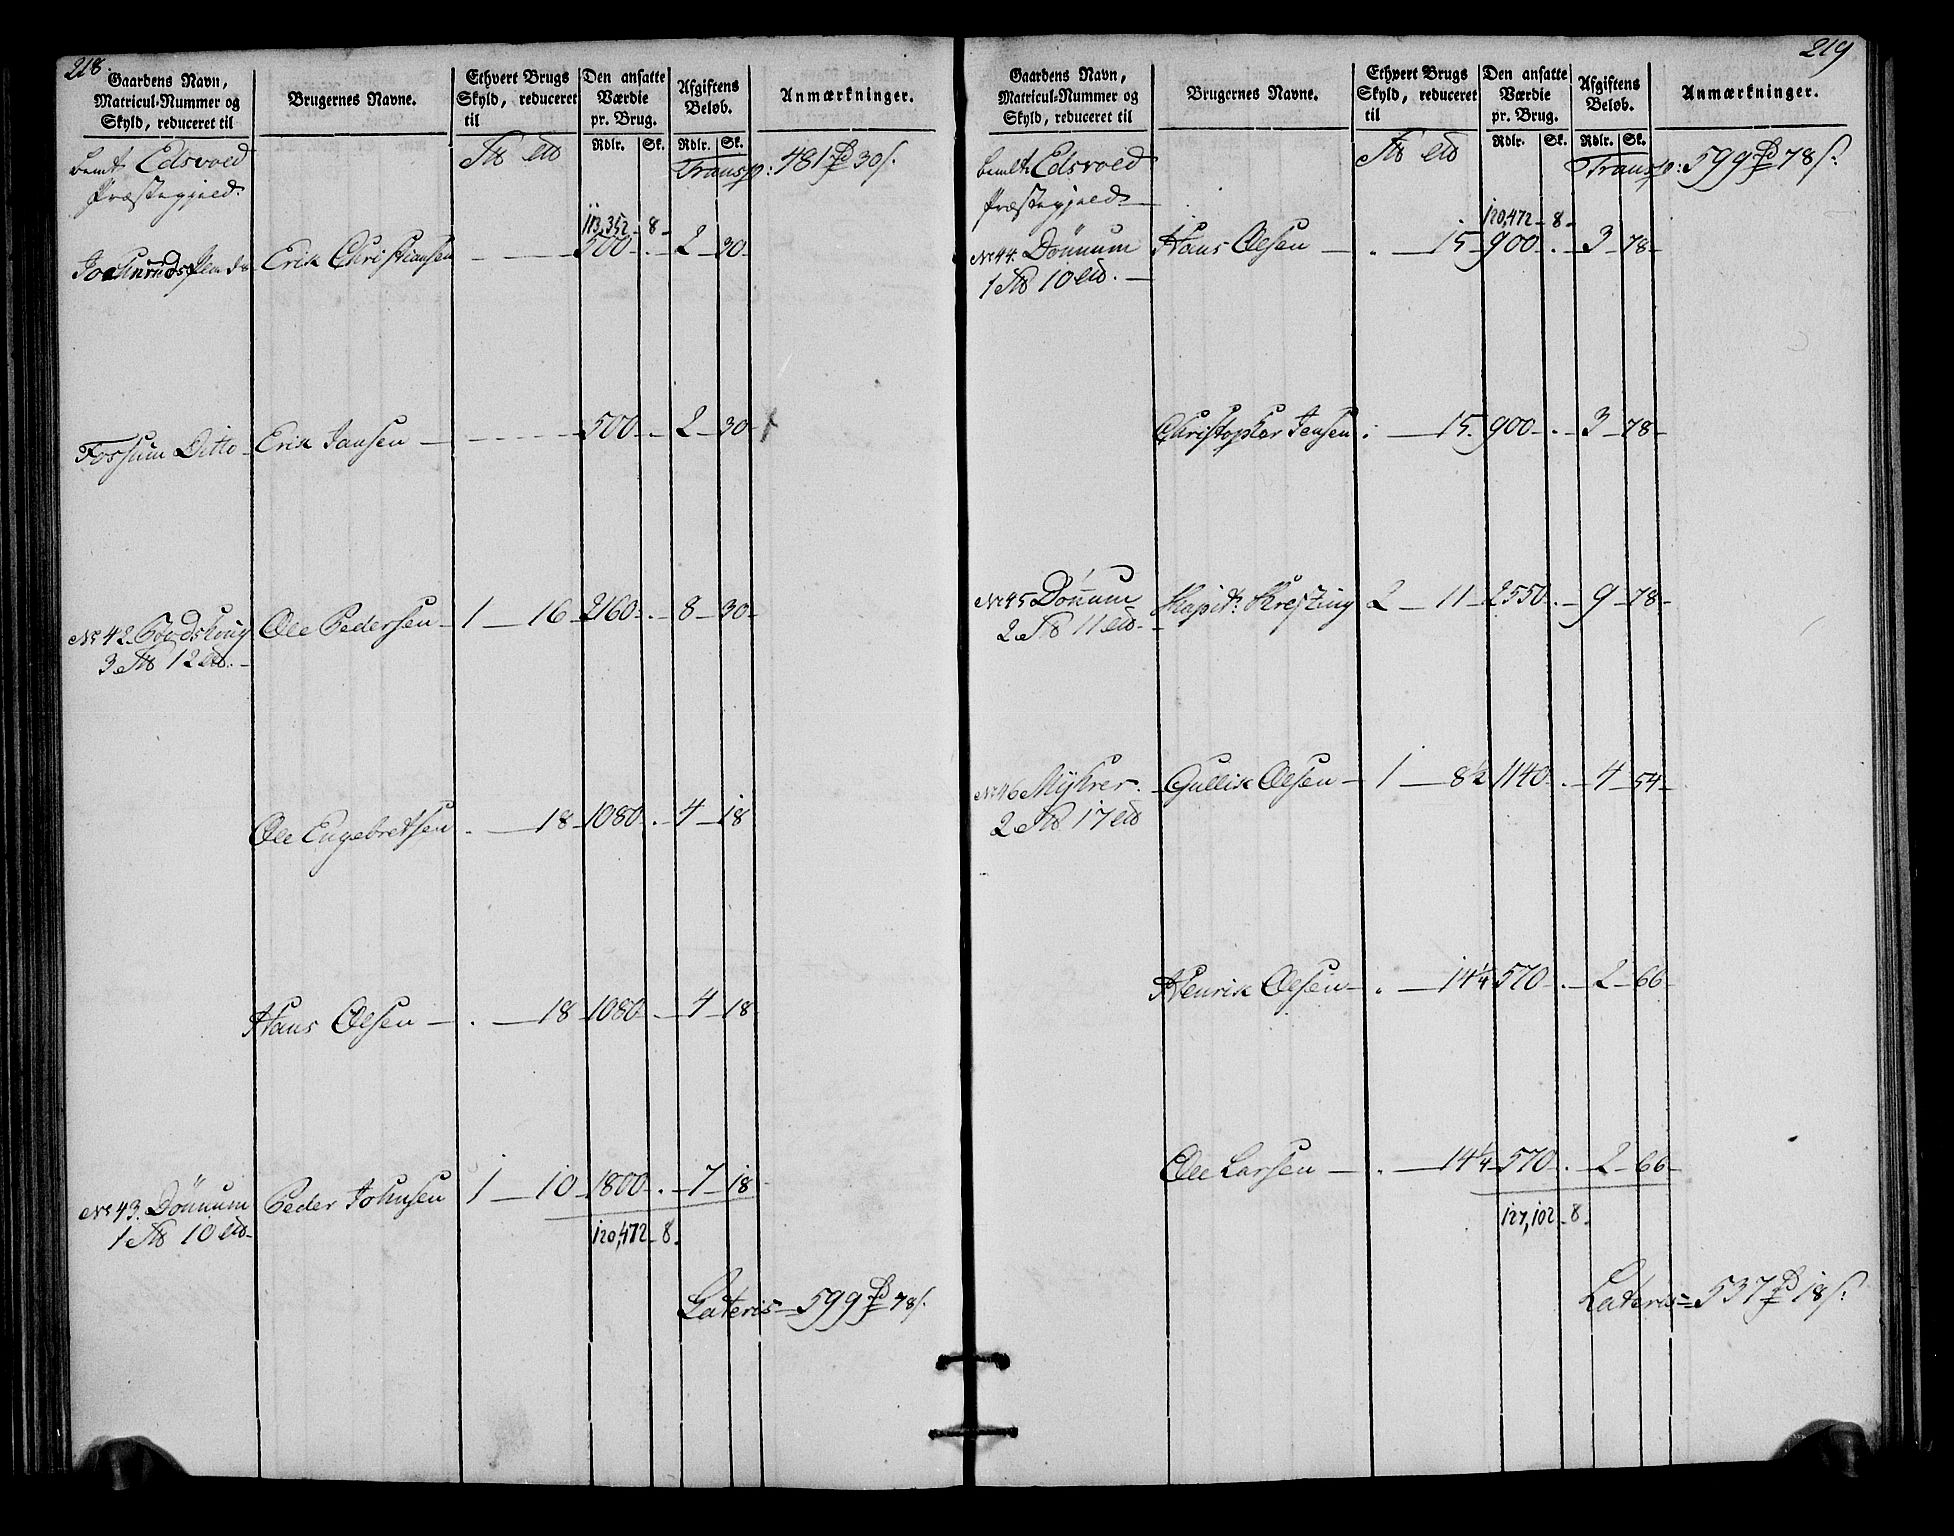 218.
Gaardens Navn,
Matricul-Nummer og
Skyld, reduceret til
Brugernes Navne.
Ethvert Brugs
Skyld, reduceret
til
Den ansatte
Værdie
pr. Brug.
Rdlr. Sk.
Afgiftens
Beløb.
Rdlr. Sk.
Anmærkninger.
bemt Edsvold
Præstegjeld.
Transp: 481 30 s.
113,352 - 8 -
Erik Christiansen - - - 500 - . - 2 - 30 -
Fossum Ditto - Erik Jansen - - - 500 - . - 2 - 30 -
No 42 Ole Pedersen - 1 - 16 - 2160 - . - 8 - 30 -
3 12
Ole Engebretsen . - 18 - 1080 - . - 4 - 18
Hans Olsen - . - 18 - 1080 - . - 4 - 18 -
No 43. Dönnum Peder Johnsen 1 - 10 - 1800 - . - 7 - 18 -
1 10
120,472 - 8 -
Lateris - 599 78 s.
219
Gaardens Navn,
Matricul-Nummer og
Skyld, reduceret til
Brugernes Navne.
Ethvert Brugs
Skyld, reduceret
til
Den ansatte
Værdie
pr. Brug.
Rdlr. Sk.
Afgiftens
Beløb.
Rdlr. Sk.
Anmærkninger.
bemlt Edsvold
Præstegjeld -
Transp: 599 78 s.
120,472 - 8 -
No 44. Dönnum Hans Olsen - . - 15 - 900 - . - 3 - 78 -
1 10
Christopher Jensen . - 15 - 900 - . - 3 - 78 -
No 45 Dönnum Kapit: Kresting 2 - 11 - 2550 - . - 9 - 78 -
2 11
No 46 Myhrer - Gullik Olsen - 1 - 8 1/2 1140 - . - 4 - 54 -
2 17
Henrik Olsen - . - 14 1/4 570 - . - 2 - 66 -
Ole Larsen - . - 14 1/4 570 - . - 2 - 66 -
127,102 - 8 -
Lateris - 537 18 s.